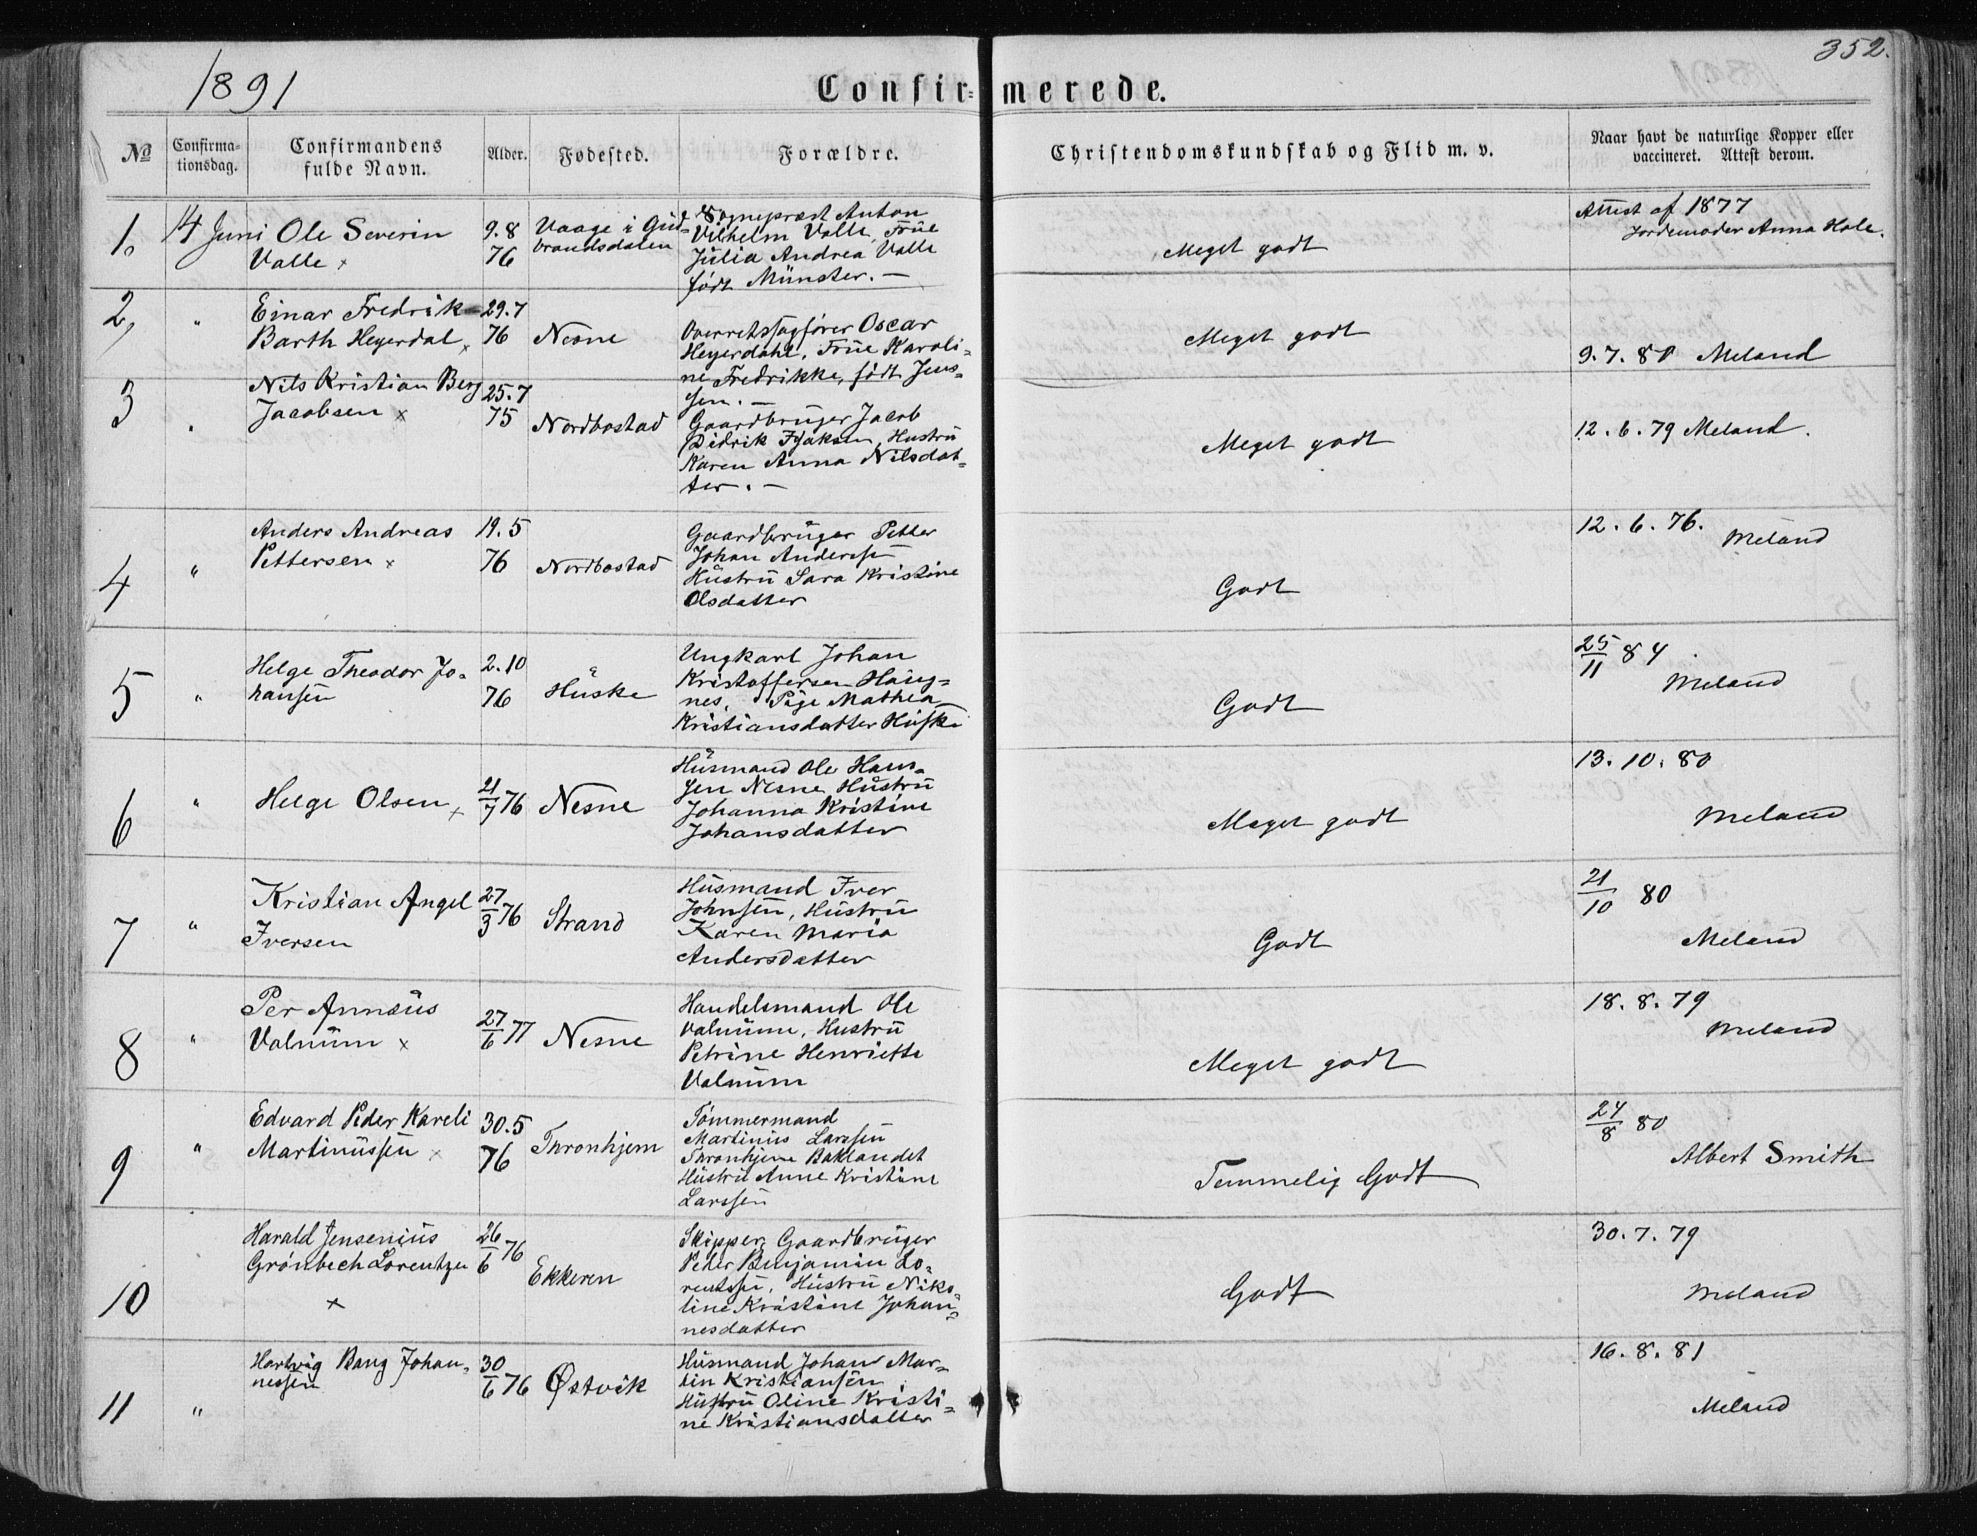 352.
1891
Confirmerede.
No
Confirma-
tionsdag.
Confirmandens
fulde Navn.
Alder.
Fødested.
Forældre.
Christendomskundskab og Flid m. v.
Naar havt de naturlige Kopper eller
vaccineret. Attest derom.
1.
14 Juni
Ole Severin
Valle x
9.8
76
Vaage i Gud-
brandsdalen
Sognepræst Anton
Vilhelm Valle, Frue
Julia Andrea Valle
født Münster. —
Meget godt
Attest af 1877
Jordemoder Anna Hole.
2,
"
Einar Fredrik
Barth Heyerdal x
29.7
76
Nesne
Overretssagfører Oscar
Heyerdahl, Frue Karoli-
ne Fredrikke, født Jens-
sen. —
Meget godt
9.7.80 Meland
3
"
Nils Kristian Berg
Jacobsen x
25.7
75
Nordbostad
Gaardbruger Jacob
Didrik Isaksen, Hustru
Karen Anna Nilsdat-
ter. —
Meget godt
12.6.79 Meland.
4
"
Anders Andreas
Pettersen x
19.5
76
Nordbostad
Gaardbruger Petter
Johan Anderssen
Hustru Sara Kristine
Olsdatter
Godt
12.6.76.
Meland
5
"
Helge Theodor Jo-
hansen
2.10
76
Huske
Ungkarl Johan
Kristoffersen Haug-
nes, Pige Mathea
Kristiansdatter Huske
Godt
25/11 84
Meland
6
"
Helge Olsen x
21/7 76
Nesne
Husmand Ole Han-
sen Nesne Hustru
Johanna Kristine
Johansdatter
Meget godt
13.10.80
Meland
7
"
Kristian Angel
Iversen
27/3 76
Strand
Husmand Iver
Johnsen, Hustru
Karen Maria
Andersdatter
Godt
21/10 80
Meland
8
"
Per Annæus
Valnum x
27/6 77
Nesne
Handelsmand Ole
Valnum, Hustru
Petrine Henriette
Valnum
Meget godt
18.8.79
Meland
9
"
Edvard Peder Kareli
Martinussen x
30.5
76
Thronhjem
Tømmermand
Martinus Larssen
Thronhjem Baklandet
Hustru Anne Kristine
Larssen
Temmelig Godt
24/8 80
Albert Smith
10
Harald Jensenius
Grønbech Lorentzen
x
26/6 76
Ekkeren
Skipper, Gaardbruger
Peter Benjamin Lo-
rentsen, Hustru Niko-
line Kristine Johan-
nesdatter
Godt
30.7.79
Meland
11
"
Hartvig Bang Johan-
nessen
30/6 76
Østvik
Husmand Johan Mar-
tin Kristiansen
Hustru Oline Kristi-
ne Kristiansdatter
16.8.81
Meland